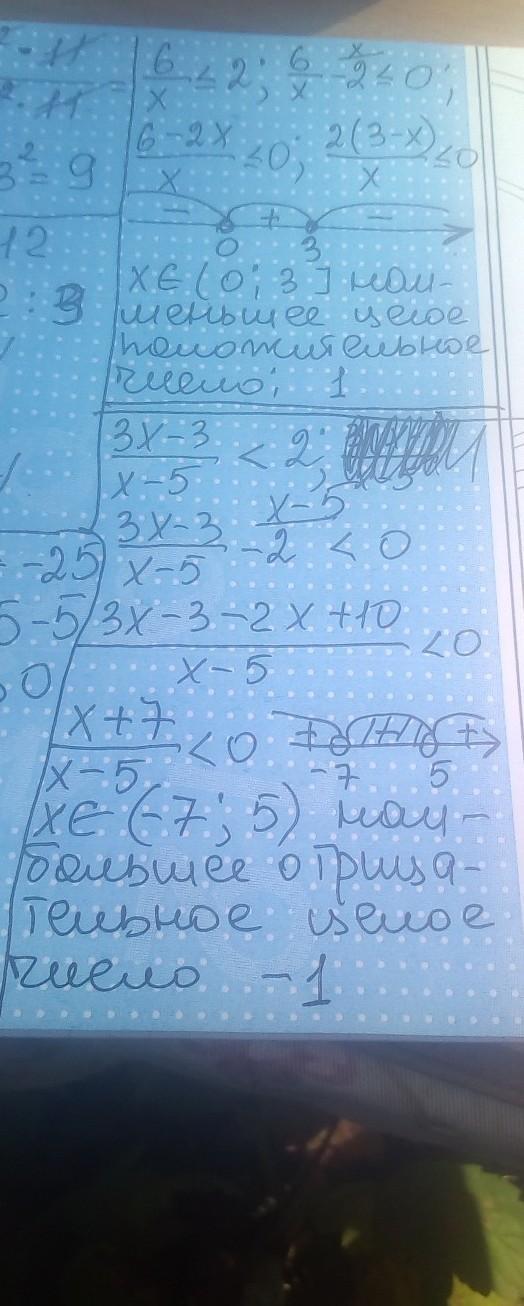 ² · 11
² · 11
3² = 9
12
: 3
= -25
5 - 5
0
6/x ≤ 2; 6/x - 2^x ≤ 0;
(6-2x)/x ≤ 0; 2(3-x)/x ≤ 0
- + -
0 3
x ∈ (0; 3] наи-
меньшее целое
положительное
число: 1
(3x-3)/(x-5) < 2;
(3x-3)/(x-5) - 2^(x-5) < 0
(3x-3-2x+10)/(x-5) < 0
(x+7)/(x-5) < 0 + +
-7 5
x ∈ (-7; 5) наи-
большее отрица-
тельное целое
число -1